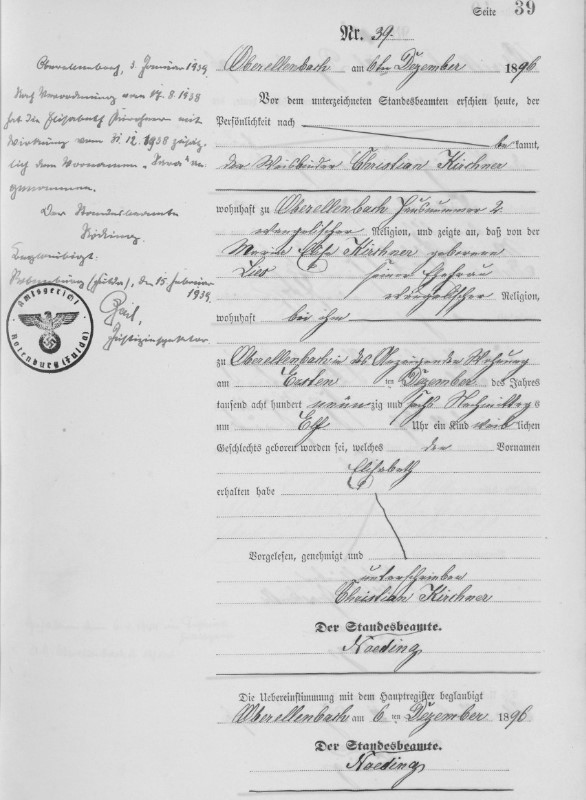 Seite 39
Nr. 39.
Oberellenbach am 6ten Dezember 1896
Vor dem unterzeichneten Standesbeamten erschien heute, der
Persönlichkeit nach
bekannt,
der Weisbinder Christian Kirchner
wohnhaft zu Oberellenbach Hausnummer 2
evangelischer Religion, und zeigte an, daß von der
Maria Kirchner geborene
seiner Ehefrau
evangelischer Religion,
wohnhaft bei ihm
zu Oberellenbach in des Anzeigenden Wohnung
am Ersten ten Dezember des Jahres
tausend acht hundert neunzig und sechs Nachmittags
um Elf Uhr ein Kind weiblichen
Geschlechts geboren worden sei, welches den Vornamen
Elisabeth
erhalten habe
Vorgelesen, genehmigt und
unterschrieben
Christian Kirchner
Der Standesbeamte.
Noeding
Die Uebereinstimmung mit dem Hauptregister beglaubigt
Oberellenbach am 6ten Dezember 1896
Der Standesbeamte.
Noeding
Oberellenbach, 3. Januar 1939
Nach Verordnung vom 17.8.1938
hat die Elisabeth Kirchner mit
Wirkung vom 31.12.1938 zusätz-
lich den Vornamen "Sara" an-
genommen.
Der Standesbeamte
Nöding.
Beglaubigt.
Rotenburg (Fulda), den 15. Februar
1939
Justizinspektor
Amtsgericht
Rotenburg (Fulda)